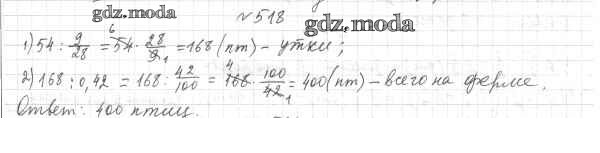 gdz.moda
№518
gdz.moda
1) 54 : 9/28 = 54 · 28/9 = 168 (пт) – утки;
2) 168 : 0,42 = 168 : 42/100 = 168 · 100/42 = 400 (пт) – всего на ферме.
Ответ: 400 птиц.